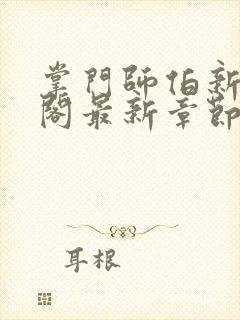 掌門師伯新
閣最新章節
耳根